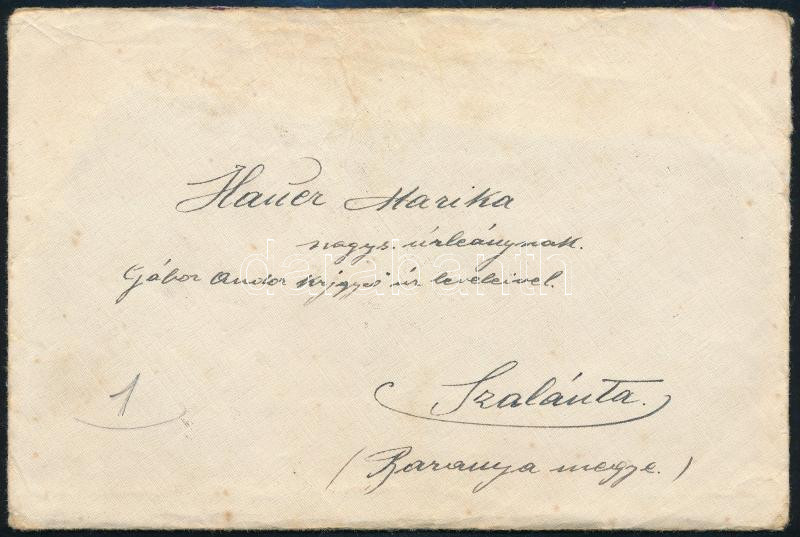 Hauer Marika
nagys. úrleánynak.
Gábor Andor úr leveleivel.
darabanth
1
Szalánta.
(Baranya megye.)